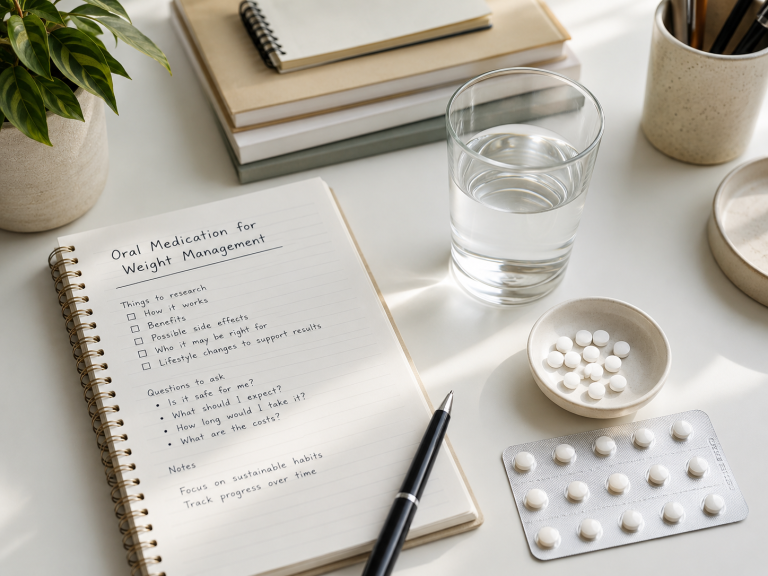 Oral Medication for
Weight Management
Things to research
How it works
Benefits
Possible side effects
Who it may be right for
Lifestyle changes to support results
Questions to ask
• Is it safe for me?
• What should I expect?
• How long would I take it?
• What are the costs?
Notes
Focus on sustainable habits
Track progress over time